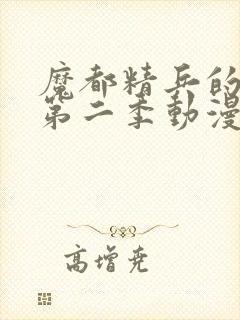 魔都精兵的
第二季動漫
高增尭